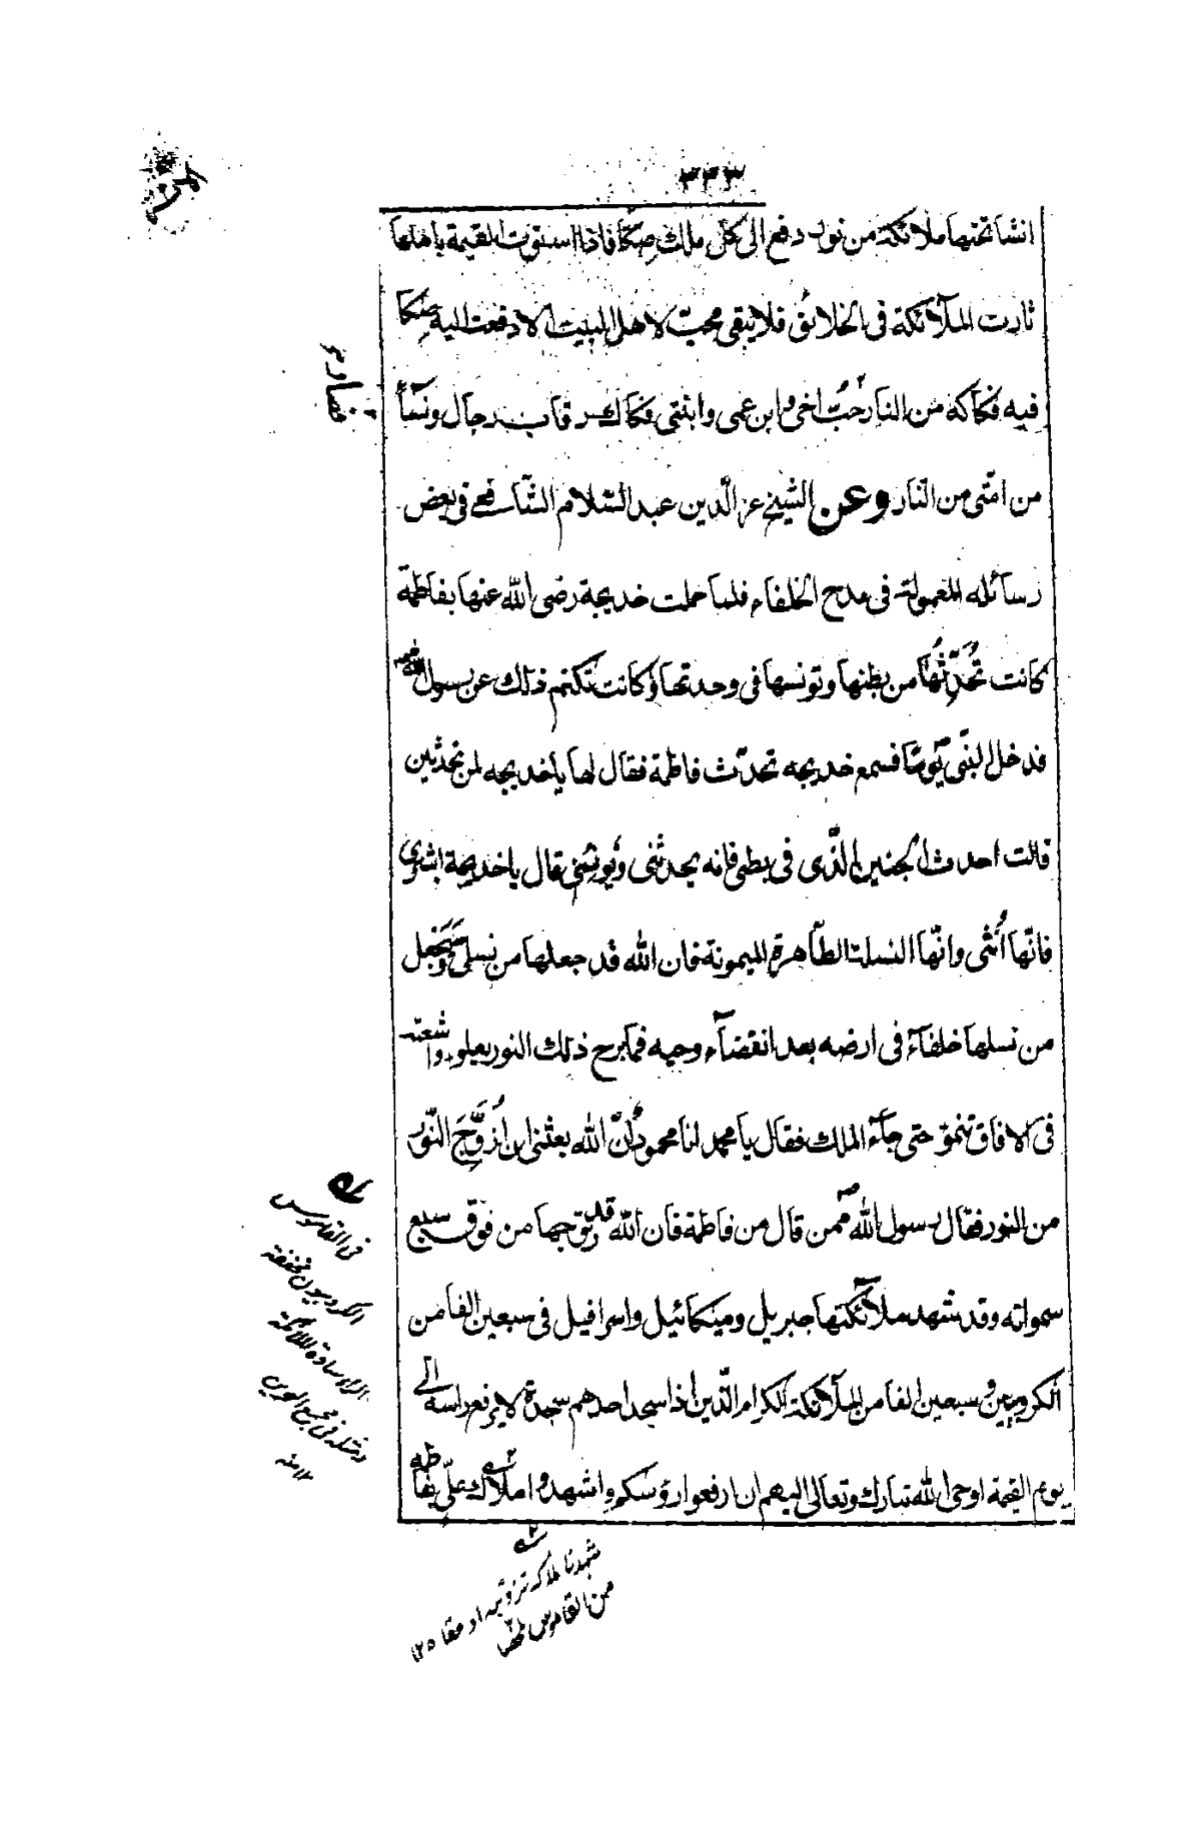 ٣٣٣
انشا تحتها ملائكة من نور دفع الى كل ملك صكا فاذا استوت القيمة باهلها
نارت الملآئكة فى الخلائق فلا يبقى محبّ لاهل البيت الا دفعت اليه صكا
فيه فكاكه من النار حُبُّ اخى وابن عمى وابنتى فكاك رقاب رجال ونسآءً
من امّتى من النّار وعن الشيخ عز الدّين عبد السّلام الشّافعى فى بعض
رسآئله المعمولة فى مدح الخلفاء فلما حملت خديجة رضى الله عنها بفاطمة
كانت تُحَدِّثُها من بطنها وتونسها فى وحدتها وكانت تكتم ذلك عن رسول الله
فدخل النبّى يومًا فسمع خديجه تحدّث فاطمة فقال لها يا خديجه لمن تحدثين
قالت احدث الجنين الذّى فى بطنى فانه يحدثنى ويونسنى قال يا خديجة ابشرى
فانّها اُنثى وانّها النسلة الطّاهرة الميمونة فان الله قد جعلها من نسلى وسَيَجعل
من نسلها خلفآءَ فى ارضه بعد انقضآء وحيه فما برح ذلك النور يعلو واشعته
فى الافاق تنمو حتى جآءَ الملك فقال يا محمد انا محمود وانّ الله بعثنى ان اُزَوِّجَ النّور
من النور فقال رسول الله ممن قال من فاطمة فان الله قد زوّجها من فوق سبع
سمواته وقد شهد ملآئكتها جبريل وميكائيل واسرافيل فى سبعين الفا من
الكروبين وسبعين الفا من الملآئكة الكرام الّذين اذا سجد احدهم سجدة لا يرفع راسه الى
يوم القيمة اوحى الله تبارك وتعالى اليهم ان ارفعوا رؤسكم واشهدوا املاك علّى بفاطمة
فى القاموس
الكروبيون مخففة
الراء سادة الملائكة
ومثله فى مجمع البحرين
١٢ منه
شهدنا ملاكه تزوجه او عقا ١٢
من القاموس